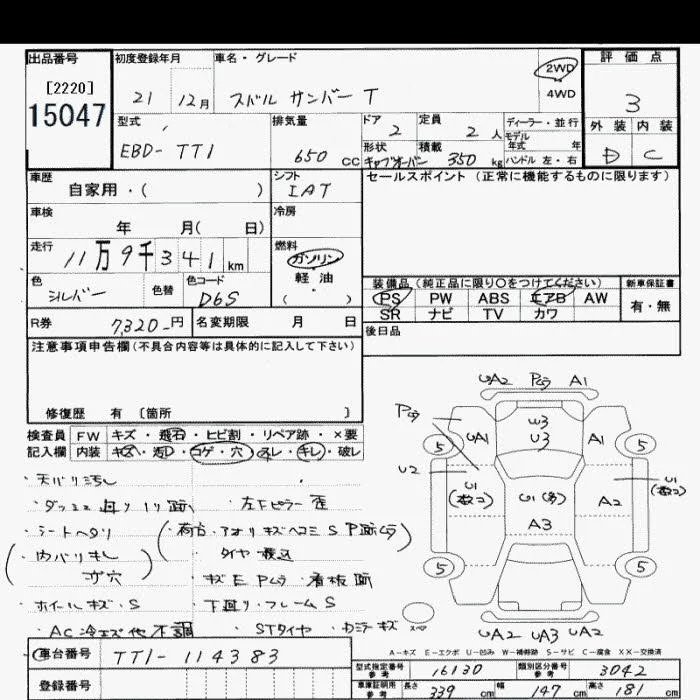 出品番号
[2220]
15047
初度登録年月
21 12月
車名・グレード
スバル サンバー T
2WD
4WD
評価点
3
外装 内装
D C
型式
EBD-TT1
排気量
650 CC
ドア 2
定員 2 人
形状 キャブオーバー
積載 350 kg
ディーラー・並行
モデル年式 年
ハンドル 左・右
車歴
自家用・( )
シフト
IAT
セールスポイント (正常に機能するものに限ります)
車検
年 月( 日)
冷房
走行
11万9千341 km
燃料
ガソリン
軽・油
( )
色
シルバー
色替
色コード
D6S
装備品 (純正品に限り○をつけてください)
PS PW ABS エアB AW
SR ナビ TV カワ
新車保証書
有・無
R券
7,320-円
名変期限 月 日
後日品
注意事項申告欄(不具合内容等は具体的に記入して下さい)
修復歴 有 [箇所 ]
検査員記入欄
FW キズ・飛石・ヒビ割・リペア跡・×要
内装 キズ・汚レ・コゲ・穴・スレ・キレ・破レ
・天バリ汚レ
・左Fピラー歪
・シートヘタリ
(荷台・アオリキズヘコミS P跡ムラ)
(・内バリキレ
ネジ穴)
・タイヤ積込
・キズE Pムラ・看板跡
・ホイールキズ・S
・下廻り・フレームS
・AC冷エズ他不調
STタイヤ
UA2 Pムラ A1
Pムラ
W3
U3
UA1
A1
5
5
U2
U1
(数コ)
U1(多)
A2
U1
(数コ)
A3
5
5
スペア
UA2 UA3 UA2
A-キズ E-エクボ U-凹み W-補修跡 S-サビ C-腐食 XX-交換済
車台番号
TT1-114383
登録番号
型式指定番号
参考
16130
類別区分番号
参考
3042
車庫証明用
参考
長さ 339 cm 幅 147 cm 高さ 181 cm